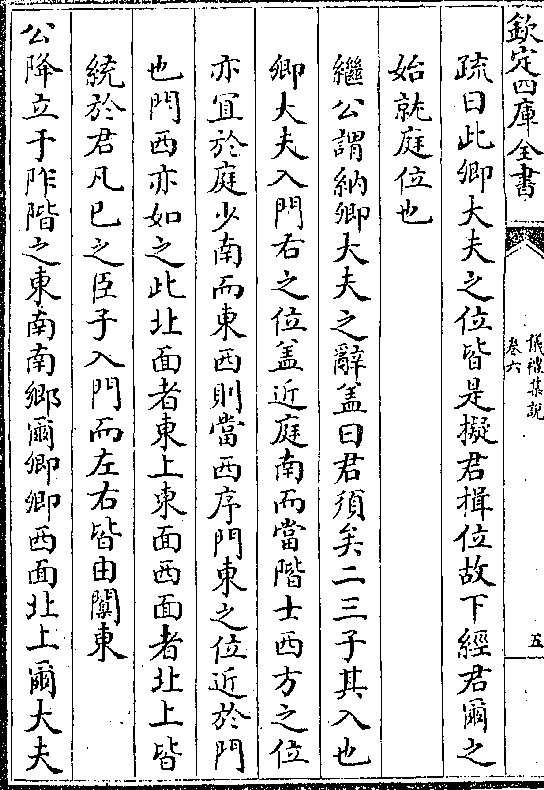 欽定四庫全書
儀禮集說
卷六
五
疏曰此卿大夫之位皆是擬君揖位故下經君爾之
始就庭位也
繼公謂納卿大夫之辭盖曰君須矣二三子其入也
卿大夫入門右之位盖近庭南而當階士西方之位
亦宜於庭少南而東西則當西序門東之位近於門
也門西亦如之此北面者東上東面西面者北上皆
統於君凡已之臣子入門而左右皆由闑東
公降立于阼階之東南南鄉爾卿卿西面北上爾大夫